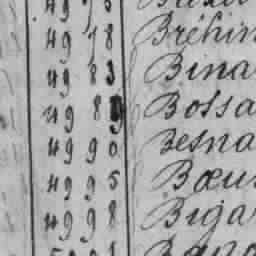 4978 Bréhin
4983 Bina
4989 Bossa
4990 Besna
4995 Bœu
4998 Biga